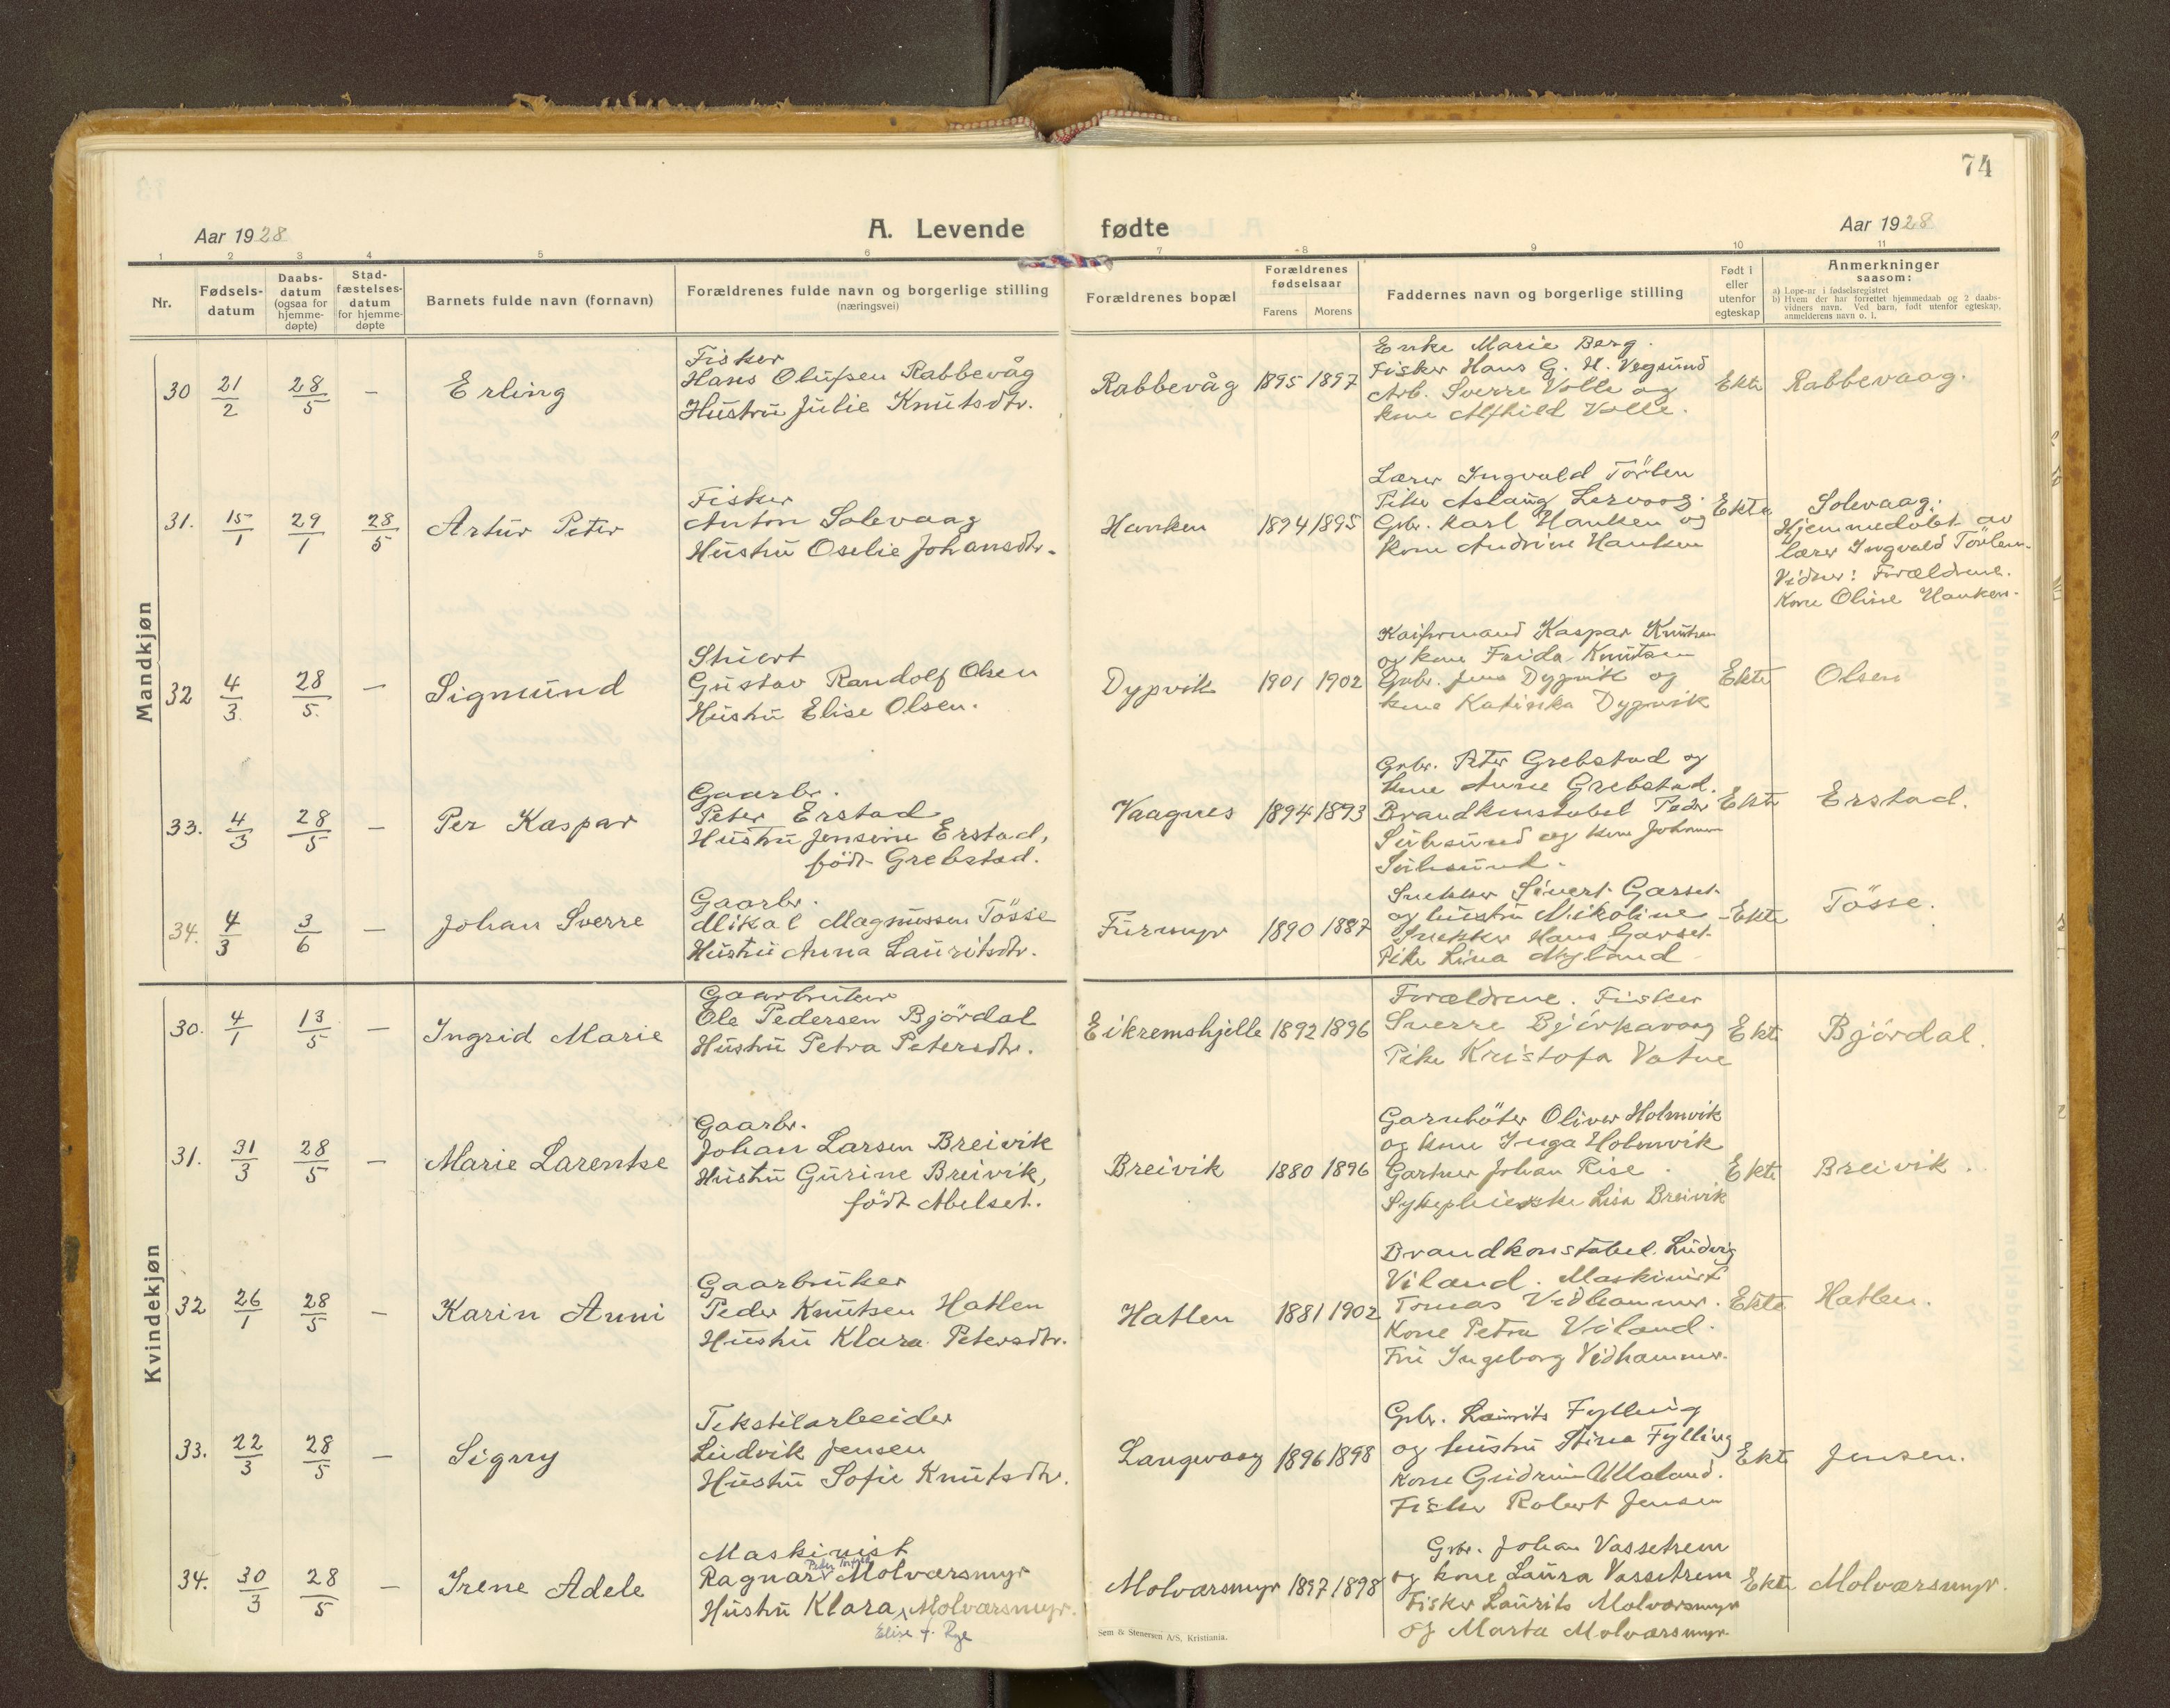 74
Aar 1928
A. Levende fødte
Aar 1928
1 2 3 4 5 6 7 8 9 10 11
Nr.
Fødsels-
datum
Daabs-
datum
(ogsaa for
hjemme-
døpte)
Stad-
fæstelses-
datum
for hjemme-
døpte
Barnets fulde navn (fornavn)
Forældrenes fulde navn og borgerlige stilling
(næringsvei)
Forældrenes bopæl
Forældrenes
fødselsaar
Farens Morens
Faddernes navn og borgerlige stilling
Født i
eller
utenfor
egteskap
Anmerkninger
saasom:
a) Løpe-nr. i fødselsregistret
b) Hvem der har forrettet hjemmedaab og 2 daabs-
vidners navn. Ved barn, født utenfor egteskap,
anmelderens navn o. l.
Mandkjøn
30 21/2 28/5 — Erling
Fisker
Hans Olufsen Rabbevåg
Hustru Julie Knutsdtr.
Rabbevåg 1895 1897
Enke Marie Berg.
Fisker Hans G. H. Vegsund
Arb. Sverre Volle og
kone Alfhild Volle.
Ekte
Rabbevaag.
31. 15/1 29/1 28/5 Artur Peter
Fisker
Anton Solevaag
Hustru Oselie Johansdtr.
Hanken 1894 1895
Lærer Ingvald Törlen
Pike Aslaug Lervaag.
Gbr. Karl Hanken og
kone Andrine Hanken
Ekte
Solevaag.
Hjemmedöbt av
lærer Ingvald Törlen.
Vidner: Forældrene.
Kone Oline Hanken.
32 4/3. 28/5. — Sigmund
Stuert
Gustav Randolf Olsen
Hustru Elise Olsen.
Dypvik 1901 1902
Kaiformand Kaspar Knutsen
og kone Frida Knutsen
Gbr. Jens Dypvik og
kone Katinka Dypvik
Ekte
Olsen
33. 4/3 28/5 — Per Kaspar
Gaarbr.
Peter Erstad
Hustru Jensine Erstad,
födt Grebstad.
Vaagnes 1894 1893
Gbr. Peter Grebstad og
kone Anne Grebstad.
Brandkonstabel Peder
Sulesund og kone Johanne
Sulesund.
Ekte
Erstad.
34. 4/3 3/6 — Johan Sverre
Gaarbr.
Mikal Magnussen Tösse
Hustru Anna Lauritsdtr.
Furmyr 1890 1887
Snekker Sivert Garset
og hustru Nikoline
Snekker Hans Garset.
Pike Lina Myland
Ekte
Tösse.
Kvindekjøn
30. 4/1 13/5 — Ingrid Marie
Gaarbruker
Ole Pedersen Björdal
Hustru Petra Petersdtr.
Eikremshjelle 1892 1896
Forældrene. Fisker
Sverre Bjørkavaag
Pike Kristofa Vatne
Ekte
Björdal.
31. 31/3 28/5 — Marie Larentse
Gaarbr.
Johan Larsen Breivik
Hustru Gurine Breivik,
födt Abelset.
Breivik 1880 1896
Garnböter Oliver Holmvik
og kone Inga Holmvik
Gartner Johan Rise.
Sykepleierske Lisa Breivik
Ekte
Breivik.
32 26/1 28/5 — Karin Anni
Gaarbruker
Peder Knutsen Hatlen
Hustru Klara Petersdtr.
Hatlen 1881 1902
Brandkonstabel Ludvig
Viland. Maskinist
Tomas Vedhammer.
Kone Petra Viland.
Fru Ingeborg Vedhammer.
Ekte
Hatlen.
33. 22/3 28/5 — Signy
Tekstilarbeider
Ludvik Jensen
Hustru Sofie Knutsdtr.
Langevaag 1896 1898
Gbr. Laurits Fylling
og hustru Stina Fylling
Kone Gudrun Ullaland.
Fisker Robert Jensen
Ekte
Jensen.
34. 30/3 28/5 — Irene Adele
Maskinist
Ragnar Molværsmyr
Hustru Klara Molværsmyr.
Elise f. Rye
Molværsmyr 1897 1898
Gbr. Johan Vassetrem
og kone Laura Vassetrem
Fisker Laurits Molværsmyr
og Marta Molværsmyr
Ekte
Molværsmyr.
Sem & Stenersen A/S, Kristiania.